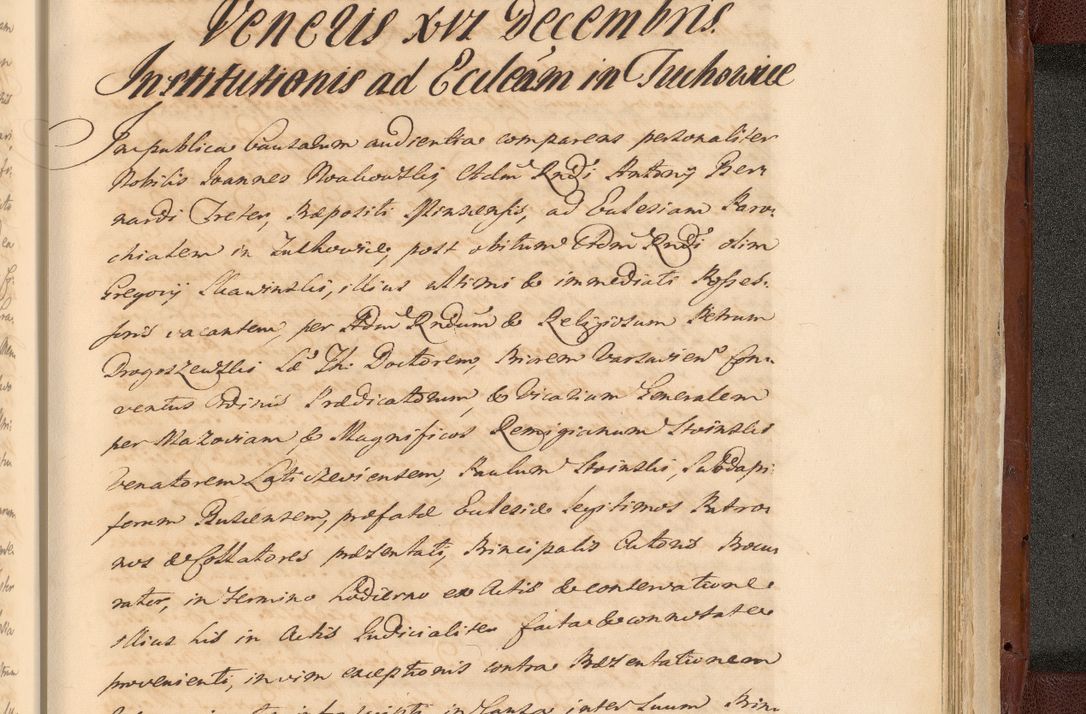 Veneris XVI Decembris.
Institutionis ad Eccleām in Tuchowice
In publica Causarum audientia comparens personaliter
Nobilis Joannes Nowakowski, Admͫ Rndi Antonij Ber-
nardi Treter, Præpositi Minscensis, ad Ecclesiam Paro-
chialem in Tuchowice, post obitum Admͫ Rndi olim
Gregorij Skawinski, illius ultimi & immediati Posses-
soris vacantem, per Admͫ Rndum & Religiosum Petrum
Drogoszewski Sæ Th: Doctorem, Priorem Varsavienͫ Con-
ventus Ordinis Prædicatorum, & Vicarium Generalem
per Mazoviam, & Magnificos Remigianum Stoinski
Venatorem Laticzeviensem, Paulum Stoinski, Subdapi-
ferum Buscensem, præfatæ Ecclesiæ legitimos Patro-
nos & Collatores præsentati, Principalis Actoris Procu-
rator, in termino hodierno ex Actis & conservatione
illius his in Actis Judicialiter facta & connotata
provenienti, in vim exceptionis contra Præsentationem
infrascripti in Causa inter suum Prin-